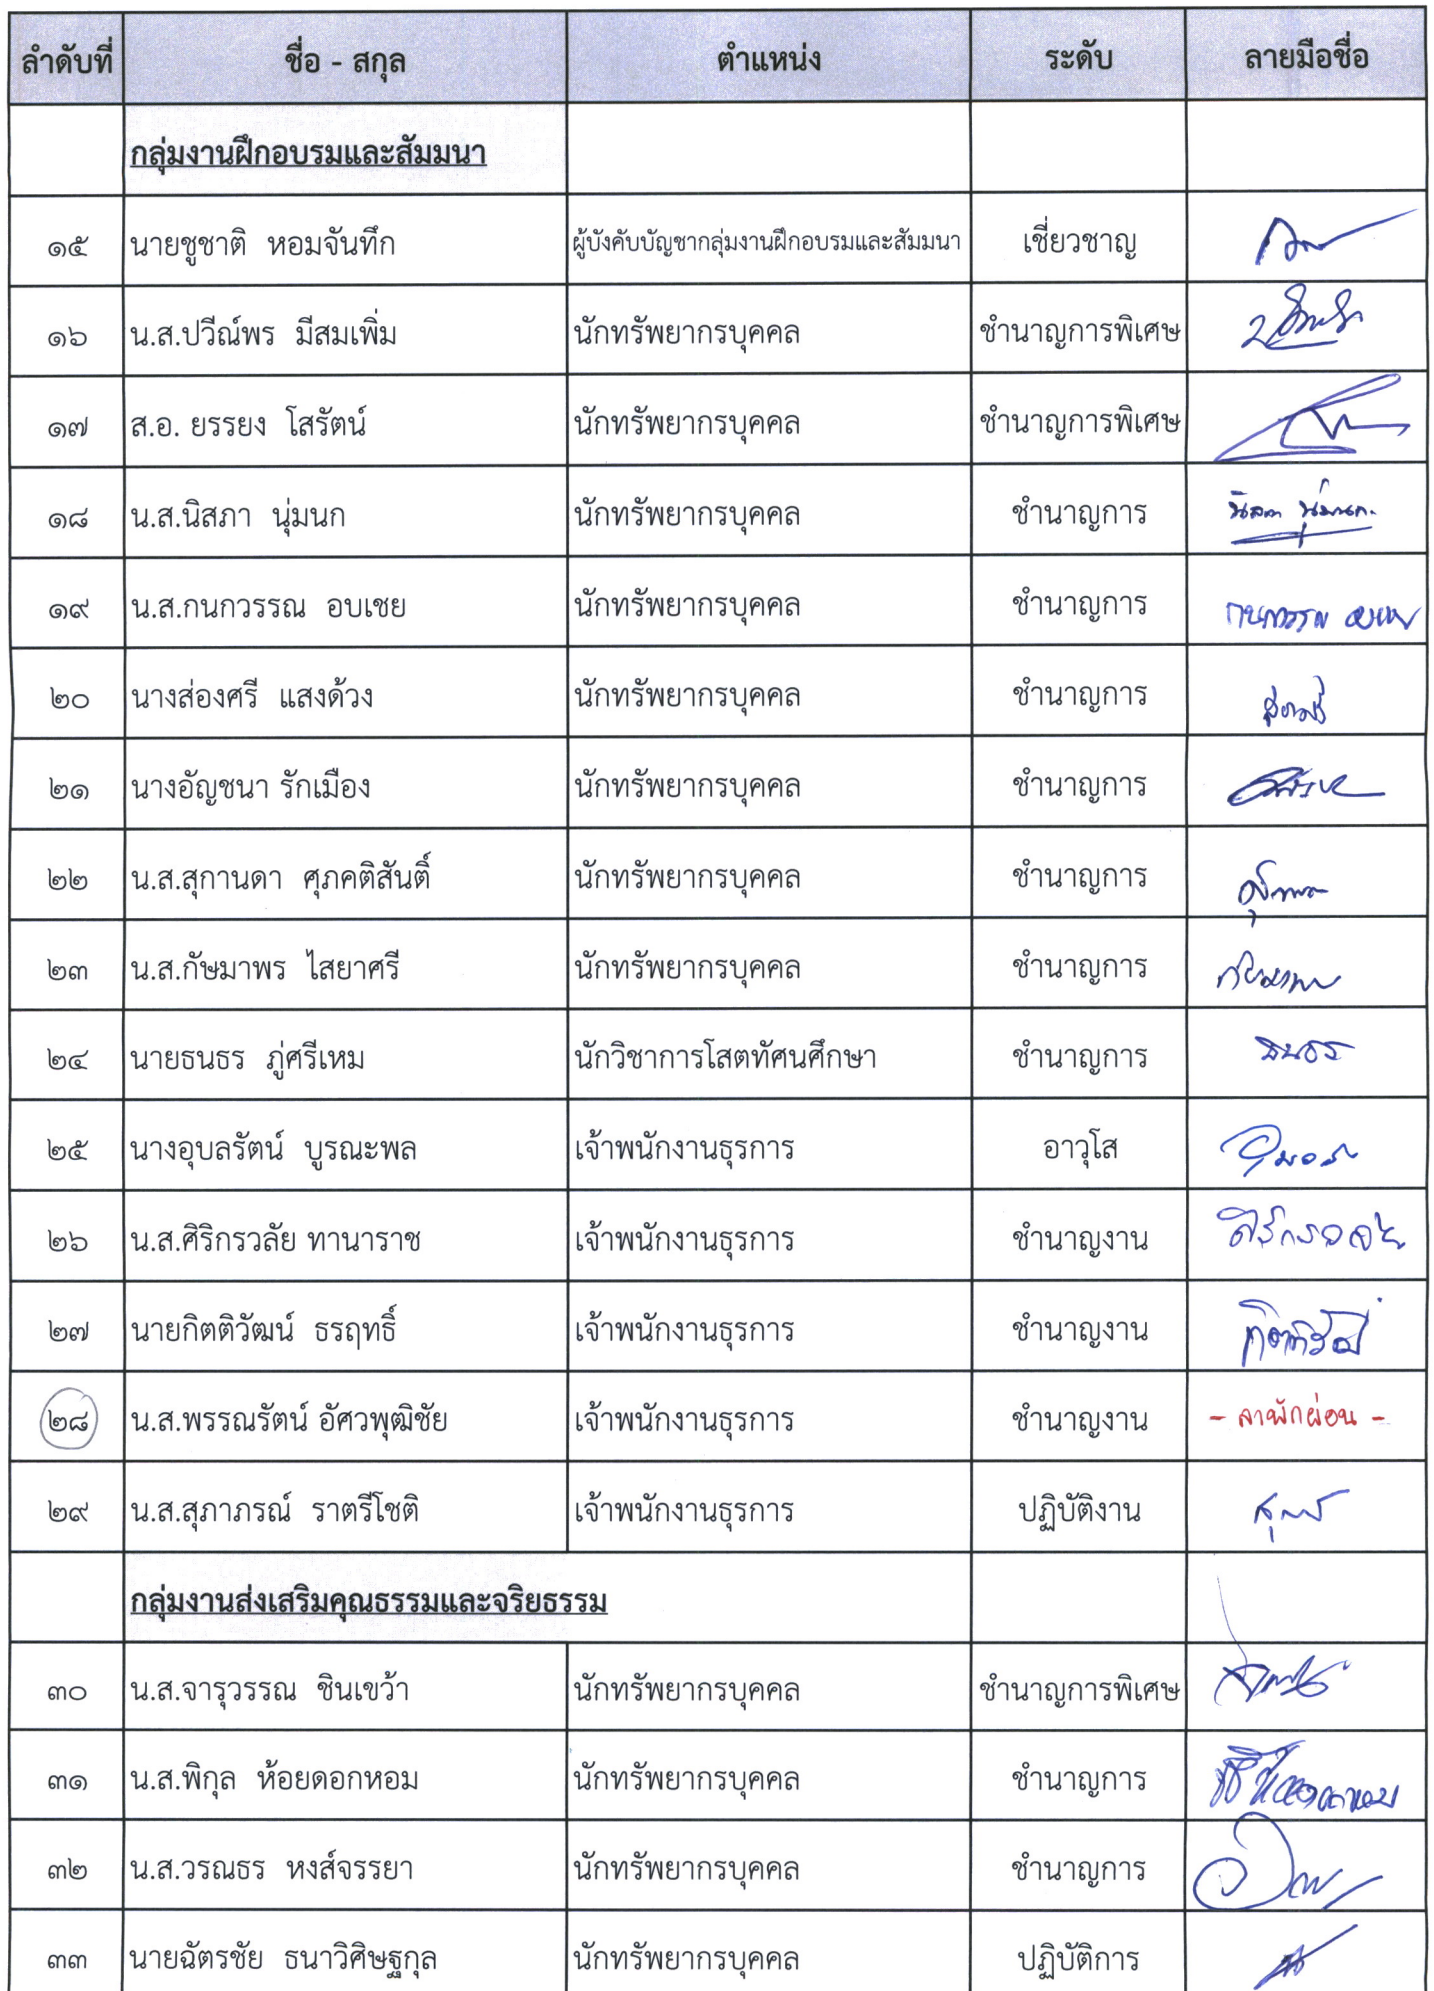 ลำดับที่ ชื่อ - สกุล ตำแหน่ง ระดับ ลายมือชื่อ
กลุ่มงานฝึกอบรมและสัมมนา
๑๕ นายชูชาติ หอมจันทึก ผู้บังคับบัญชากลุ่มงานฝึกอบรมและสัมมนา เชี่ยวชาญ
๑๖ น.ส.ปวีณ์พร มีสมเพิ่ม นักทรัพยากรบุคคล ชำนาญการพิเศษ
๑๗ ส.อ. ยรรยง โสรัตน์ นักทรัพยากรบุคคล ชำนาญการพิเศษ
๑๘ น.ส.นิสภา นุ่มนก นักทรัพยากรบุคคล ชำนาญการ นิสภา นุ่มนก
๑๙ น.ส.กนกวรรณ อบเชย นักทรัพยากรบุคคล ชำนาญการ กนกวรรณ อบเชย
๒๐ นางส่องศรี แสงด้วง นักทรัพยากรบุคคล ชำนาญการ ส่องศรี
๒๑ นางอัญชนา รักเมือง นักทรัพยากรบุคคล ชำนาญการ
๒๒ น.ส.สุกานดา ศุภคติสันติ์ นักทรัพยากรบุคคล ชำนาญการ
๒๓ น.ส.กัษมาพร ไสยาศรี นักทรัพยากรบุคคล ชำนาญการ กัษมาพร
๒๔ นายธนธร ภู่ศรีเหม นักวิชาการโสตทัศนศึกษา ชำนาญการ ธนธร
๒๕ นางอุบลรัตน์ บูรณะพล เจ้าพนักงานธุรการ อาวุโส
๒๖ น.ส.ศิริกรวลัย ทานาราช เจ้าพนักงานธุรการ ชำนาญงาน ศิริกรวลัย
๒๗ นายกิตติวัฒน์ ธรฤทธิ์ เจ้าพนักงานธุรการ ชำนาญงาน กิตติวัฒน์
๒๘ น.ส.พรรณรัตน์ อัศวพุฒิชัย เจ้าพนักงานธุรการ ชำนาญงาน - ลาพักผ่อน -
๒๙ น.ส.สุภาภรณ์ ราตรีโชติ เจ้าพนักงานธุรการ ปฏิบัติงาน
กลุ่มงานส่งเสริมคุณธรรมและจริยธรรม
๓๐ น.ส.จารุวรรณ ชินเขว้า นักทรัพยากรบุคคล ชำนาญการพิเศษ
๓๑ น.ส.พิกุล ห้อยดอกหอม นักทรัพยากรบุคคล ชำนาญการ
๓๒ น.ส.วรณธร หงส์จรรยา นักทรัพยากรบุคคล ชำนาญการ
๓๓ นายฉัตรชัย ธนาวิศิษฐกุล นักทรัพยากรบุคคล ปฏิบัติการ